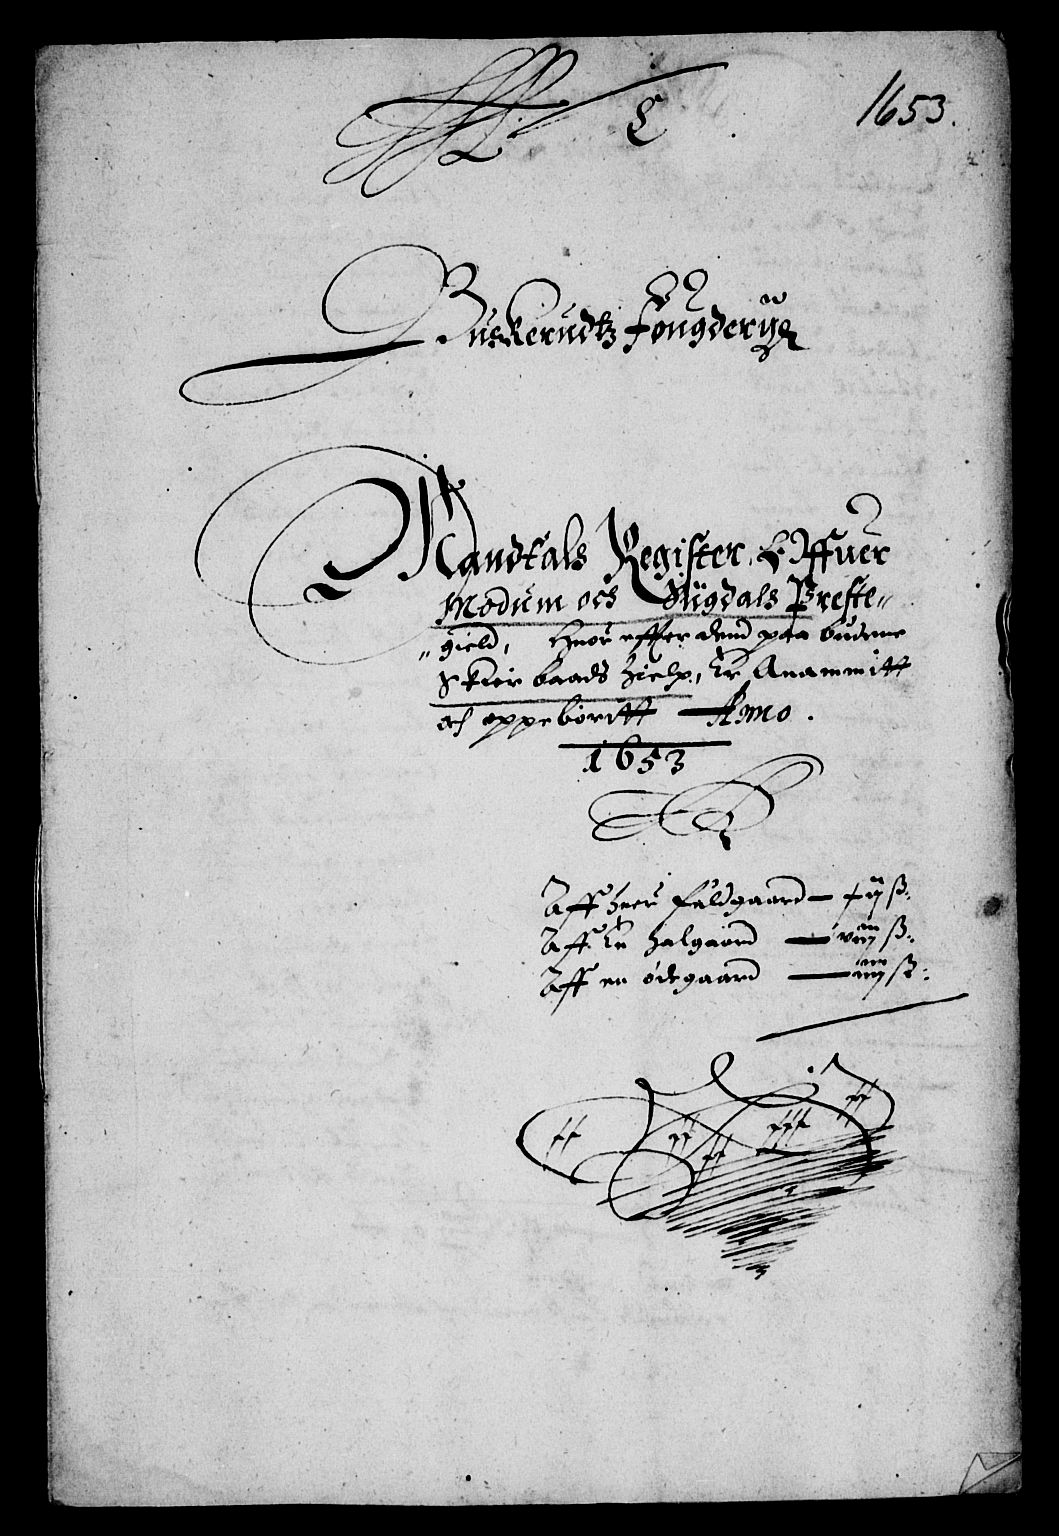 1653.
Buskerudtz fougderij
Mandtals Register. Offuer
Modum och Sigdals Preste„
„gield, Huor effter dend paa budene
Skier baads hielp, Er Anammitt
och oppeboritt Anno.
1653
Aff huer fuldgaard — xij ß:
Aff En halgaard — viij ß:
Aff en ødegaard — iiij ß: